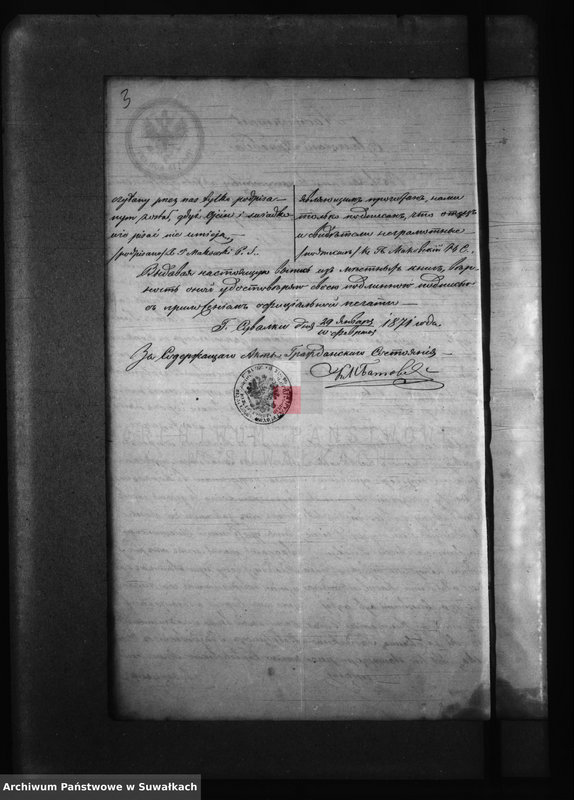 3
czytany przez nas tylko podpisa-
nym został, gdyż Ojciec i świadko-
wie pisać nie umieją
/podpisano/ X. P. Makowski P. S.
являющимся прочитан, нами
только подписан, что отец
и свидетели неграмотные
/подписал/ К. П. Маковскій Н. С.
Выдавая настоящую выпись из местных книг, вер-
ность оной удостоверяю своею подлинною подписью
с приложением официальной печати
Г. Сувалки дня 29 Января / 10 Февраля 1871 года
За Содержащаго Акты Гражданскаго Состоянія
Archiwum Państwowe w Suwałkach